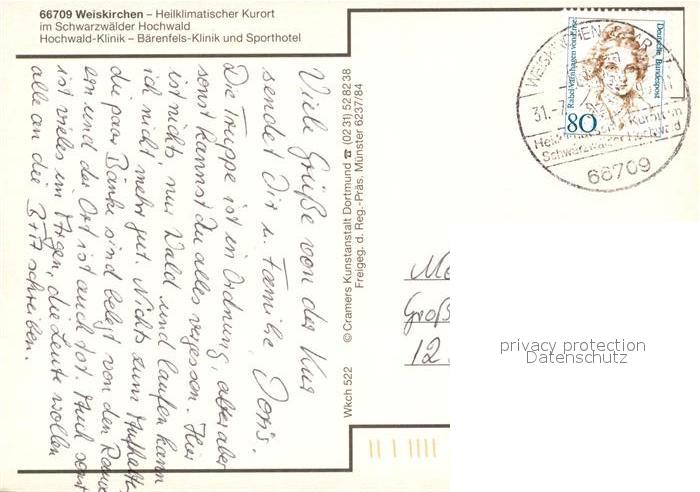 66709 Weiskirchen – Heilklimatischer Kurort
im Schwarzwälder Hochwald
Hochwald-Klinik – Bärenfels-Klinik und Sporthotel
Viele Grüße von der Kur
sendet Dir u. Familie Doris.
Die Truppe ist in Ordnung, aber aber
sonst kannst du alles vergessen. Hier
ist nichts nur Wald und laufen kann
ich nicht mehr gut. Nichts zum
die paar Bänke sind belegt von den
und der Ort ist auch tot. Auch sonst
ist vieles im Argen, die Leute wollen
alle an die schreiben.
Wkch 522 © Cramers Kunstanstalt Dortmund ☎ (02 31) 52 82 38
Freigeg. d. Reg.-Präs. Münster 6237/84
Deutsche Bundespost
Rahel Varnhagen von Ense
80
WEISKIRCHEN
31.
Heilklimatischer Kurort im
Schwarzwälder Hochwald
66709
Groß
12
privacy protection
Datenschutz